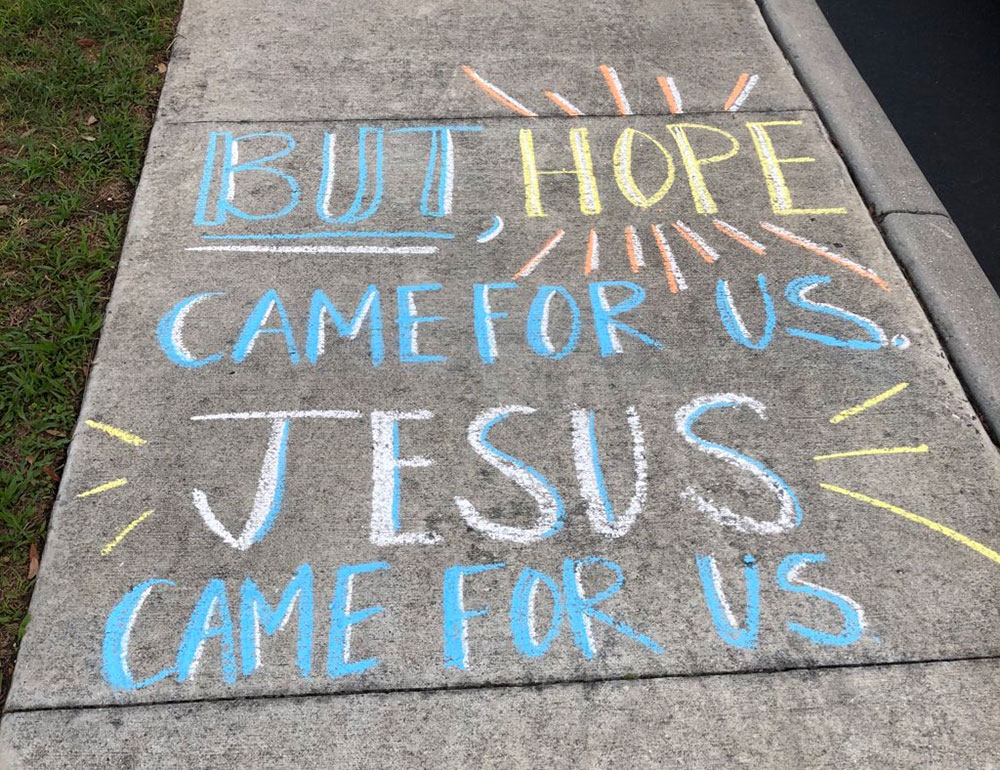 BUT, HOPE
CAME FOR US.
JESUS
CAME FOR US